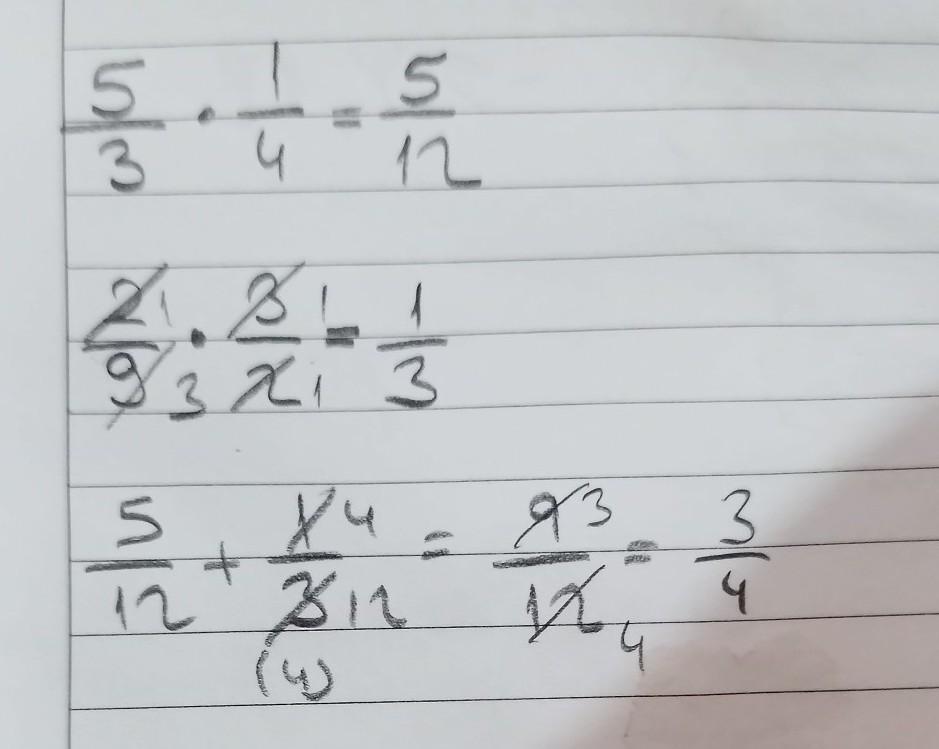 5/3 · 1/4 = 5/12
2̸ 1/9̸ 3 · 3̸ 1/2̸ 1 = 1/3
5/12 + 1̸ 4/3̸ 12 (4) = 9̸ 3/1̸2̸ 4 = 3/4